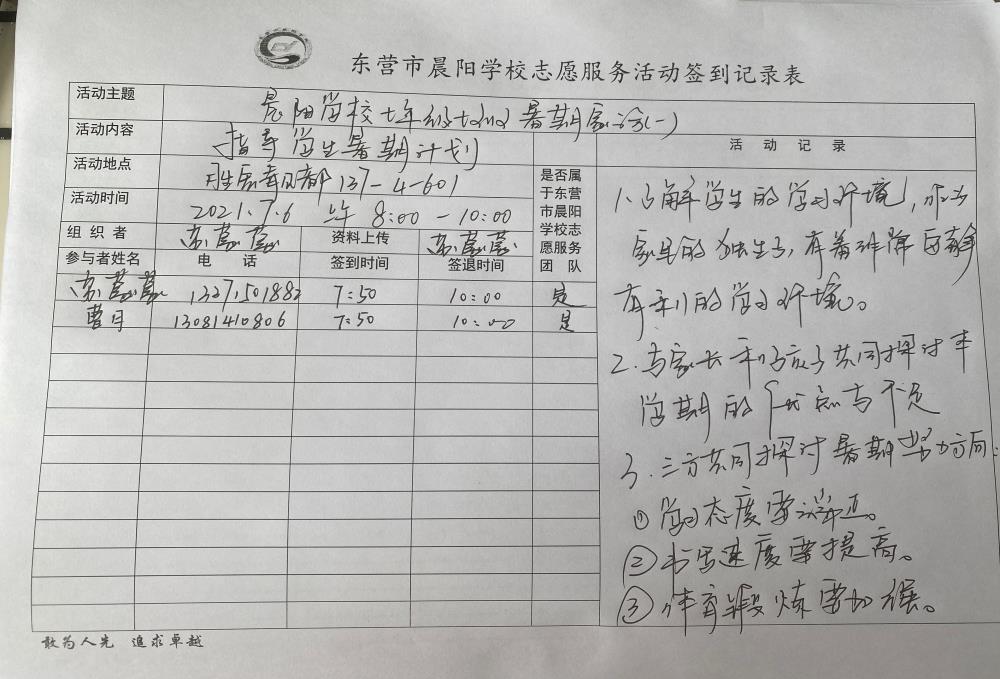 东营市晨阳学校志愿服务活动签到记录表
活动主题 晨阳学校七年级七班暑期家访(一)
活动内容 指导学生暑期计划
活动地点 137-4-601
活动时间 2021.7.6 上午 8:00-10:00
组织者 资料上传
参与者姓名 电话 签到时间 签退时间
是否属
于东营
市晨阳
学校志
愿服务
团队
7:50 10:00 是
曹月 13081410806 7:50 10:00 是
活动记录
1.了解学生的学习环境,
家里的 有着
有利的学习环境。
2.与家长和孩子共同探讨本
学期的优点与不足
3.三方共同探讨暑期努力方向:
①学习态度要端正。
②书写速度需提高。
③体育锻炼需加强。
敢为人先 追求卓越